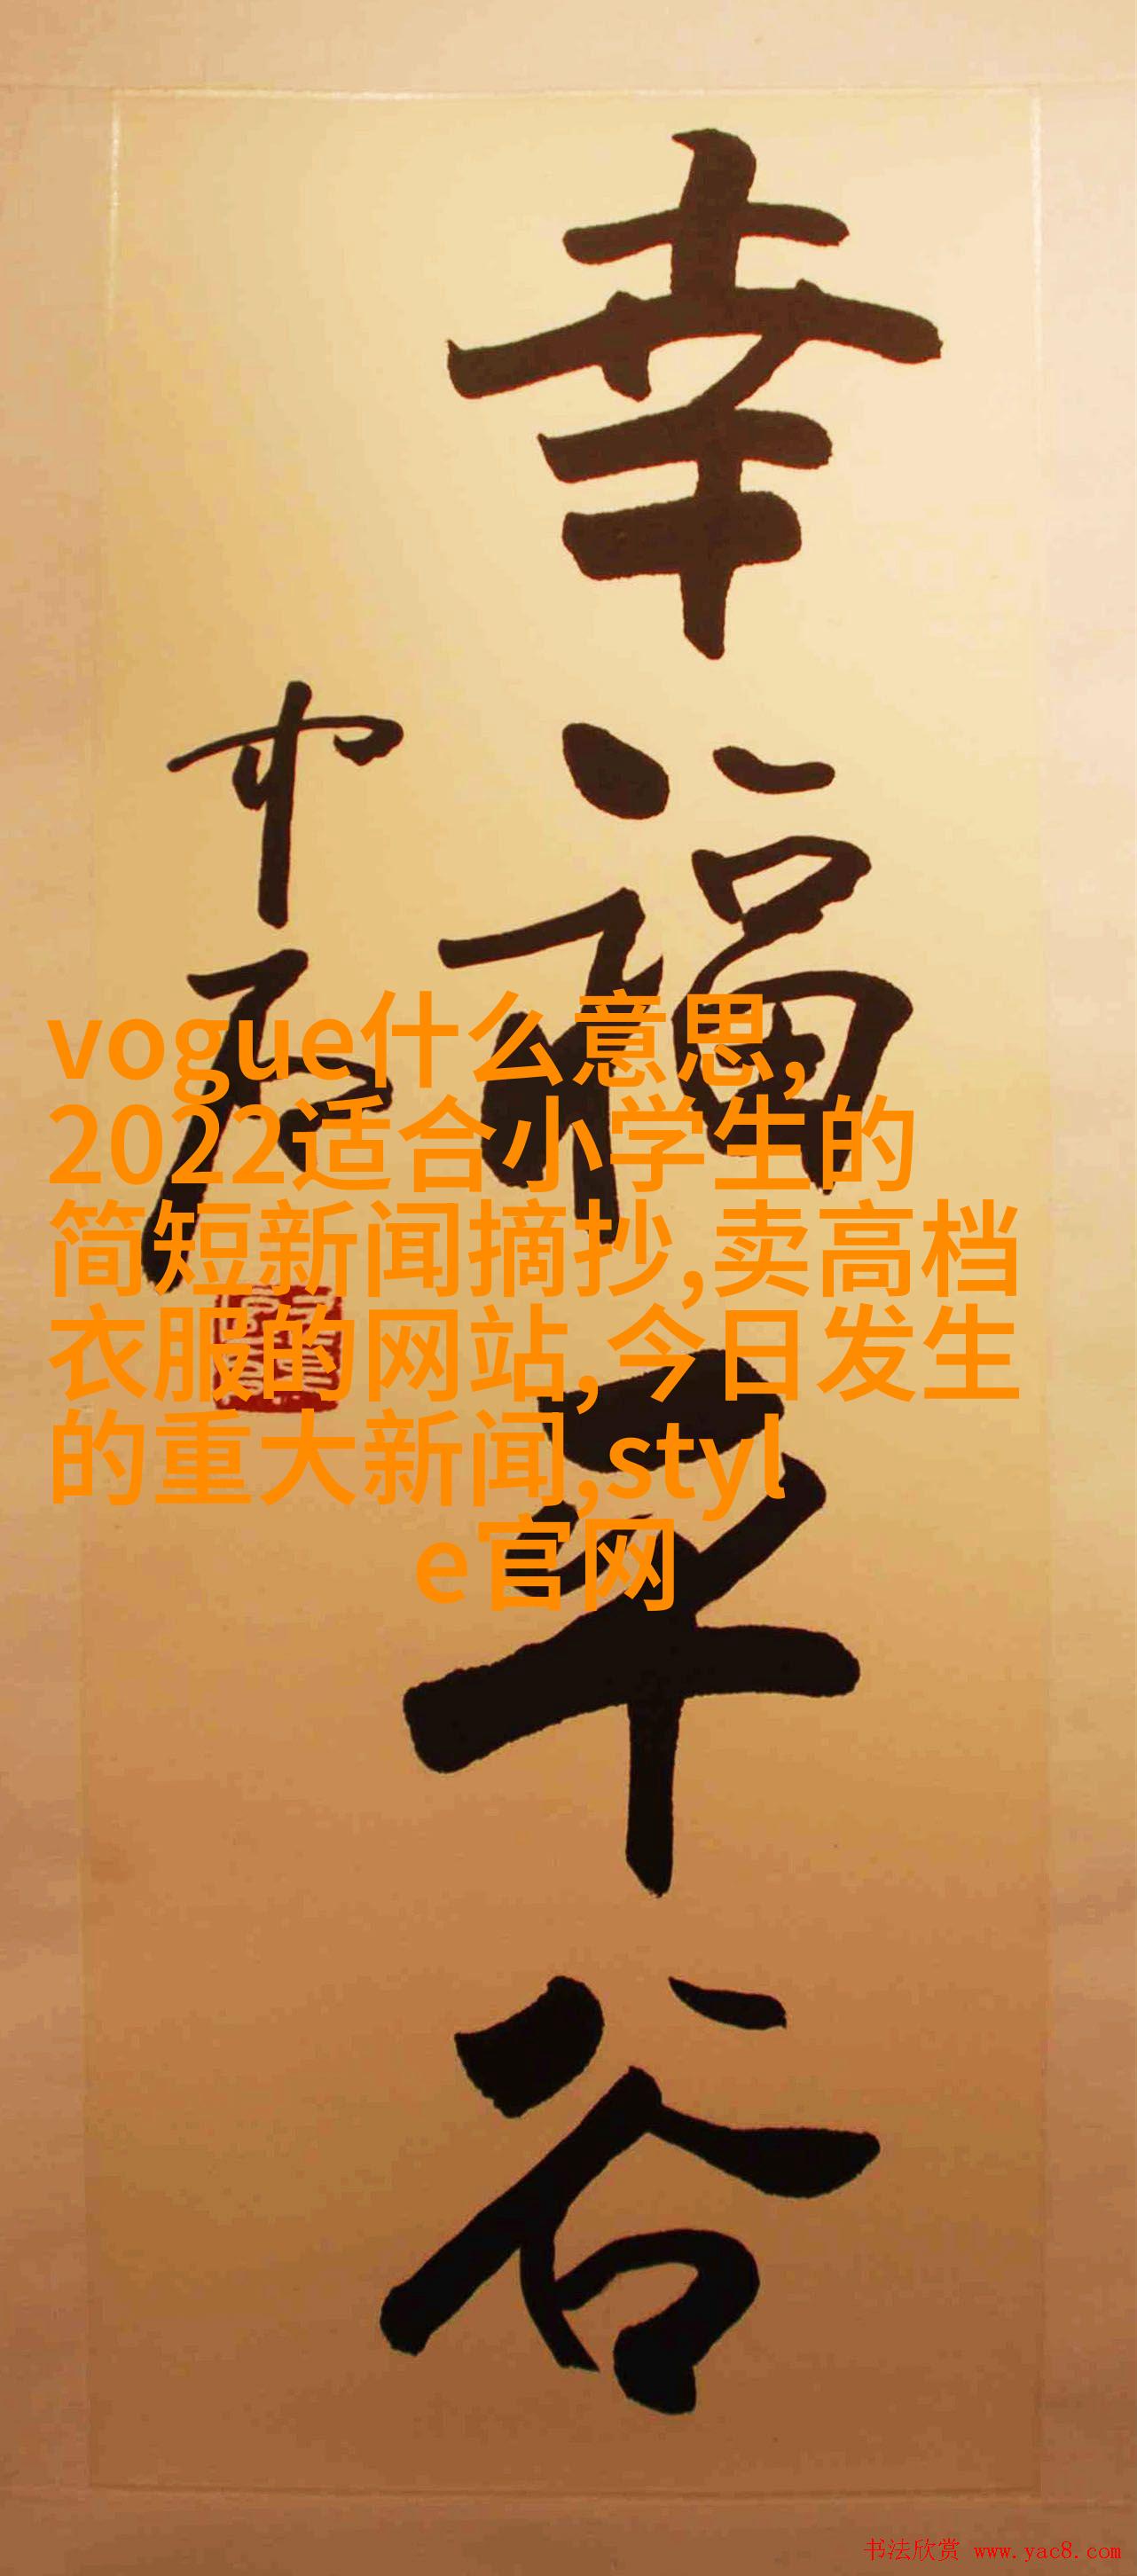 幸福平谷
中石
vogue什么意思,
2022适合小学生的
简短新闻摘抄,卖高档
衣服的网站, 今日发生
的重大新闻,styl
e官网
书法欣赏 www.yac8.com